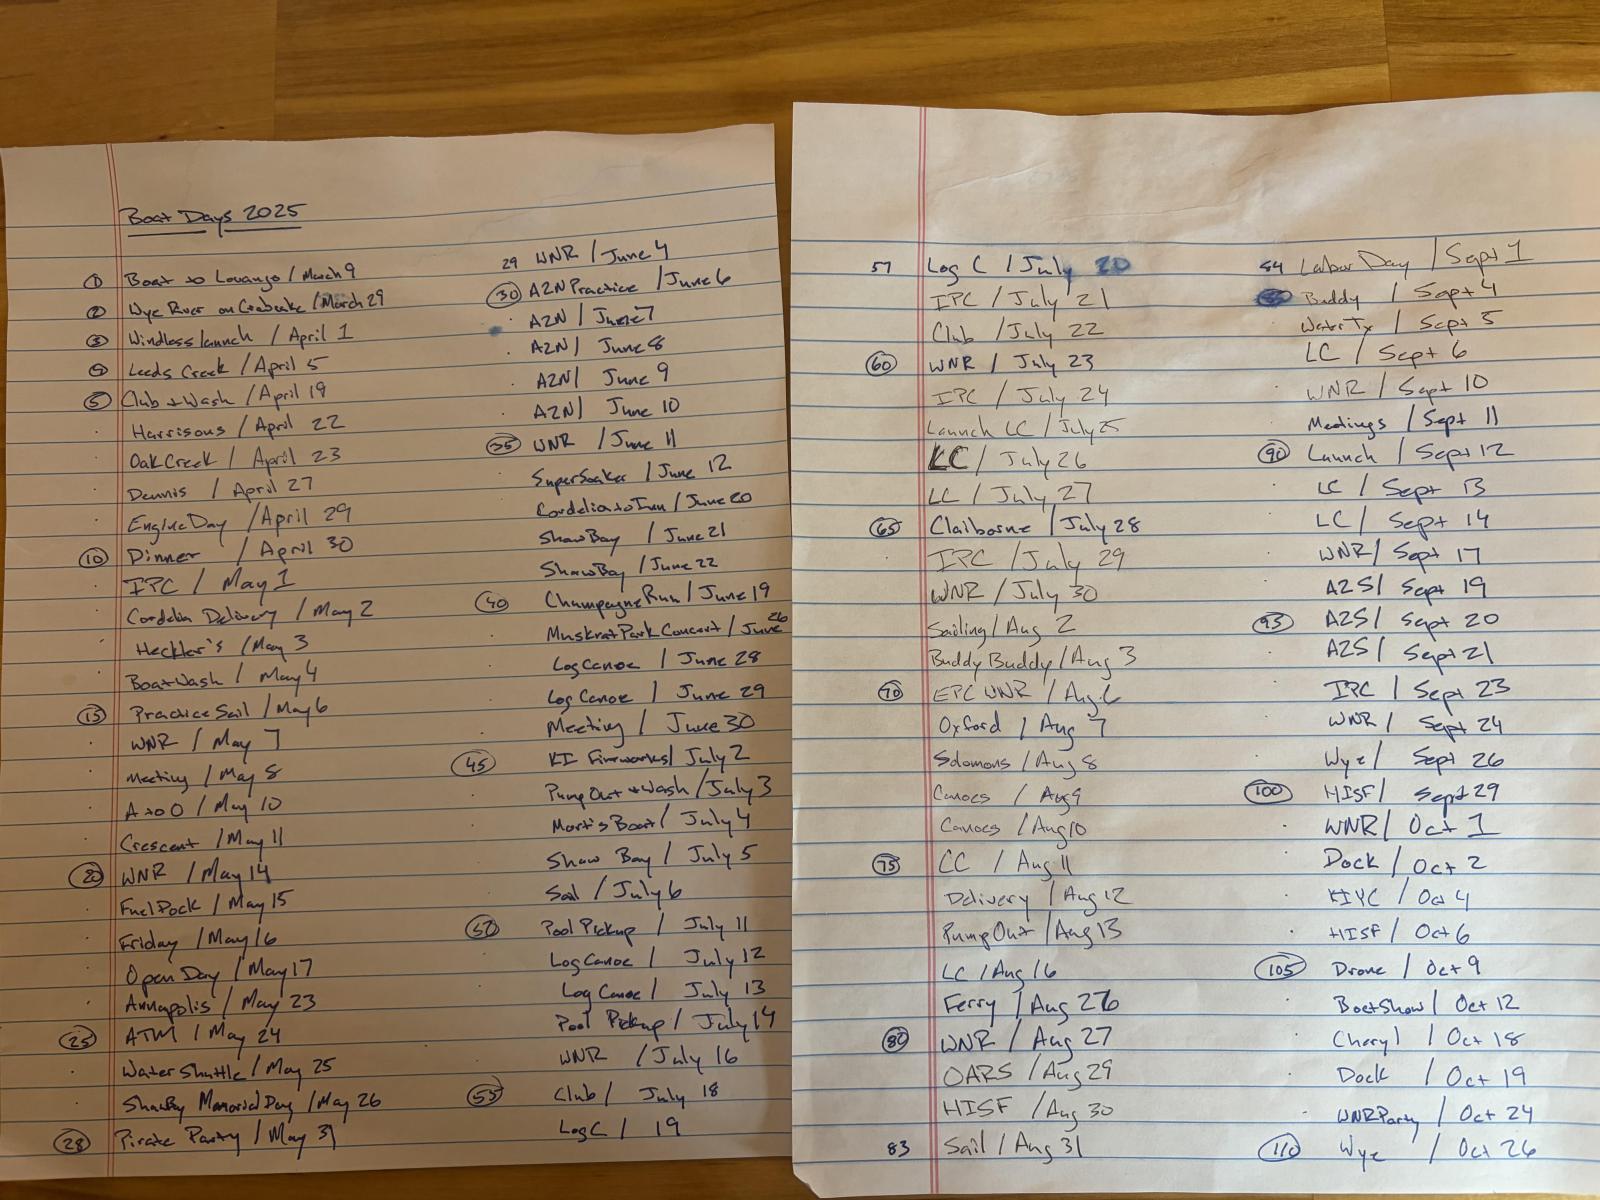 Boat Days 2025
1 Boat to Lovango / March 9
2 Wye River on Crabcake / March 29
3 Windless launch / April 1
4 Leeds Creek / April 5
5 Club + Wash / April 19
Harrisons / April 22
Oak Creek / April 23
Dennis / April 27
Engine Day / April 29
10 Dinner / April 30
IPC / May 1
Cordelia Delivery / May 2
Heckler's / May 3
Boat Wash / May 4
15 Practice Sail / May 6
WNR / May 7
Meeting / May 8
A to O / May 10
Crescent / May 11
20 WNR / May 14
Fuel Dock / May 15
Friday / May 16
Open Day / May 17
Annapolis / May 23
25 ATM / May 24
Water Shuttle / May 25
Shaw Bay Memorial Day / May 26
28 Pirate Party / May 31
29 WNR / June 4
30 A2N Practice / June 6
A2N / June 7
A2N / June 8
A2N / June 9
A2N / June 10
35 WNR / June 11
SuperSoaker / June 12
Cordelia to Inn / June 20
Shaw Bay / June 21
Shaw Bay / June 22
40 Champagne Run / June 19
Muskrat Park Concert / June 26
Log Canoe / June 28
Log Canoe / June 29
Meeting / June 30
45 KI Fireworks / July 2
Pump Out + Wash / July 3
Mort's Boat / July 4
Shaw Bay / July 5
Sail / July 6
50 Pool Pickup / July 11
Log Canoe / July 12
Log Canoe / July 13
Pool Pickup / July 14
WNR / July 16
55 Club / July 18
Log C / 19
57 Log C / July 20
IPC / July 21
Club / July 22
60 WNR / July 23
IPC / July 24
Launch LC / July 25
LC / July 26
LC / July 27
65 Claiborne / July 28
IPC / July 29
WNR / July 30
Sailing / Aug 2
Buddy Buddy / Aug 3
70 EPC WNR / Aug 6
Oxford / Aug 7
Solomons / Aug 8
Canoes / Aug 9
Canoes / Aug 10
75 CC / Aug 11
Delivery / Aug 12
Pump Out / Aug 13
LC / Aug 16
Ferry / Aug 26
80 WNR / Aug 27
OARS / Aug 29
HISF / Aug 30
83 Sail / Aug 31
84 Labor Day / Sept 1
Buddy / Sept 4
Water Tx / Sept 5
LC / Sept 6
WNR / Sept 10
Meetings / Sept 11
90 Launch / Sept 12
LC / Sept 13
LC / Sept 14
WNR / Sept 17
A2S / Sept 19
95 A2S / Sept 20
A2S / Sept 21
IPC / Sept 23
WNR / Sept 24
Wye / Sept 26
100 HISF / Sept 29
WNR / Oct 1
Dock / Oct 2
KIYC / Oct 4
HISF / Oct 6
105 Drone / Oct 9
Boat Show / Oct 12
Cheryl / Oct 18
Dock / Oct 19
WNR Party / Oct 24
110 Wye / Oct 26